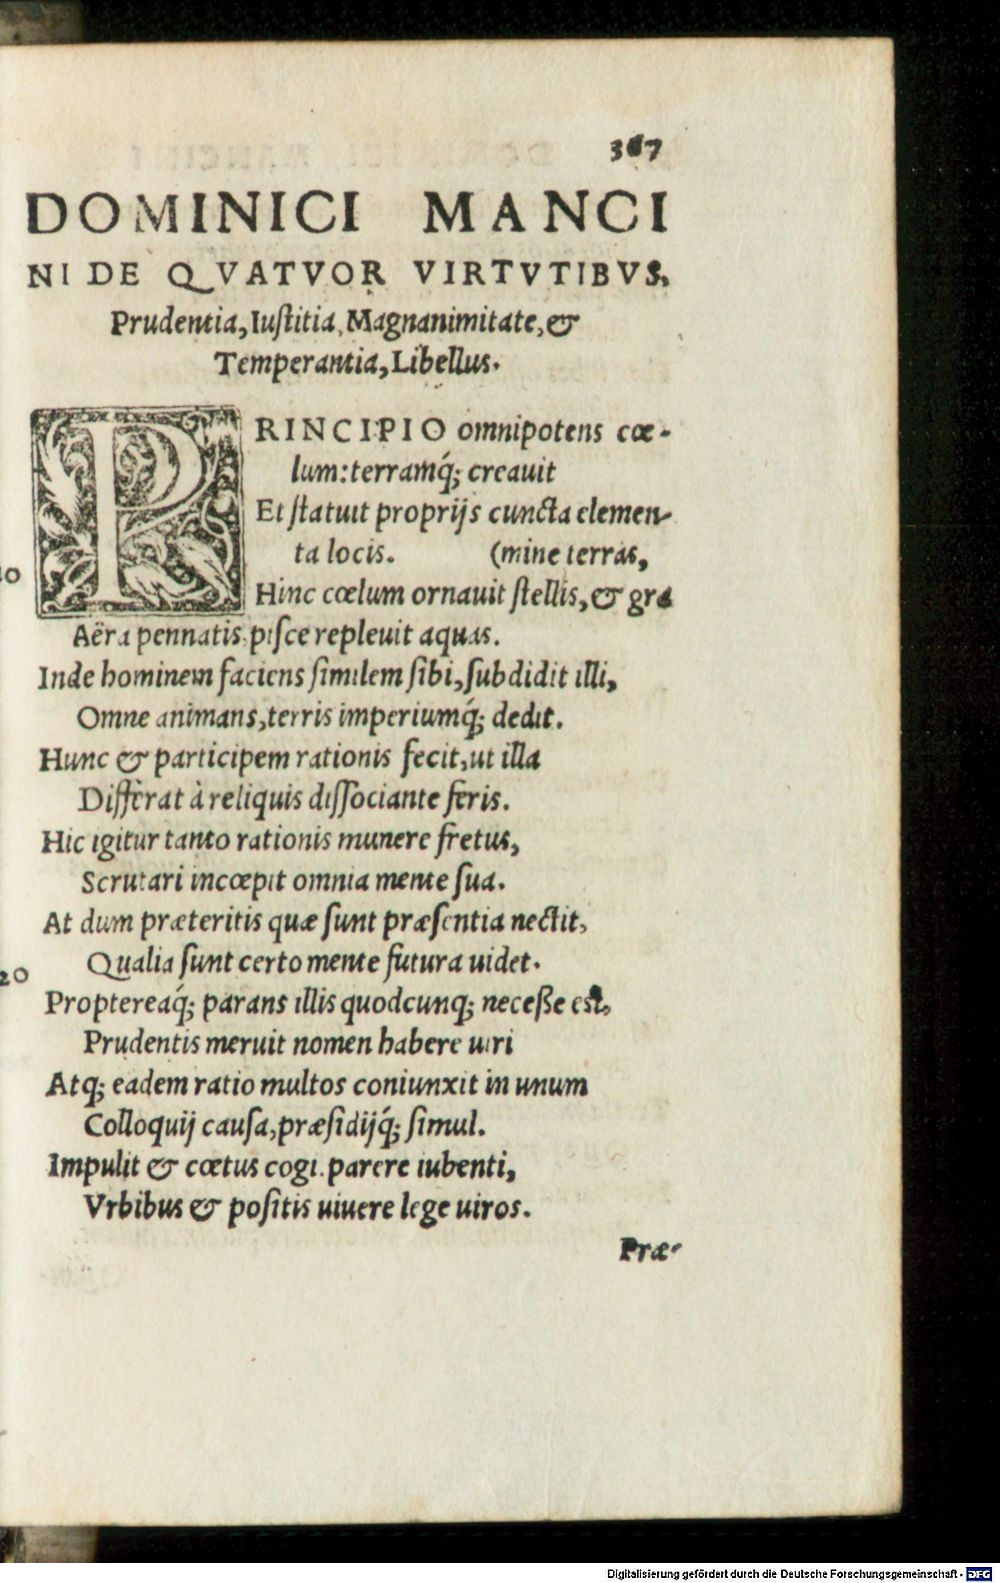 367
DOMINICI MANCI
NI DE QVATVOR VIRTVTIBVS,
Prudentia, Iuſtitia, Magnanimitate, &
Temperantia, Libellus.
PRINCIPIO omnipotens cœ-
lum: terramq́; creauit
Et ſtatuit proprijs cuncta elemen-
ta locis. (mine terras,
10
Hinc cœlum ornauit ſtellis, & gra
Aëra pennatis piſce repleuit aquas.
Inde hominem faciens ſimilem ſibi, ſubdidit illi,
Omne animans, terris imperiumq́; dedit.
Hunc & participem rationis fecit, ut illa
Differat à reliquis diſſociante feris.
Hic igitur tanto rationis munere fretus,
Scrutari incœpit omnia mente ſua.
At dum præteritis quæ ſunt præſentia nectit,
Qualia ſunt certo mente futura uidet.
20
Proptereaq́; parans illis quodcunq; neceſſe eſt,
Prudentis meruit nomen habere uiri
Atq; eadem ratio multos coniunxit in unum
Colloquij cauſa, præſidijq́; ſimul.
Impulit & cœtus cogi parere iubenti,
Vrbibus & poſitis uiuere lege uiros.
Præ-
Digitalisierung gefördert durch die Deutsche Forschungsgemeinschaft - DFG